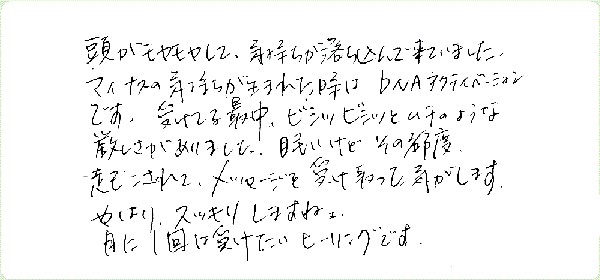 頭がモヤモヤして、気持ちが落ち込んで来ていました。
マイナスの気持ちが生まれた時は DNAアクティベーション
です。受けてる最中、ビシッビシッとムチのような
厳しさがありました。眠いけど その都度、
起こされて、メッセージを受け取った気がします。
やはり、スッキリしますねェ
月に1回は受けたいヒーリングです。